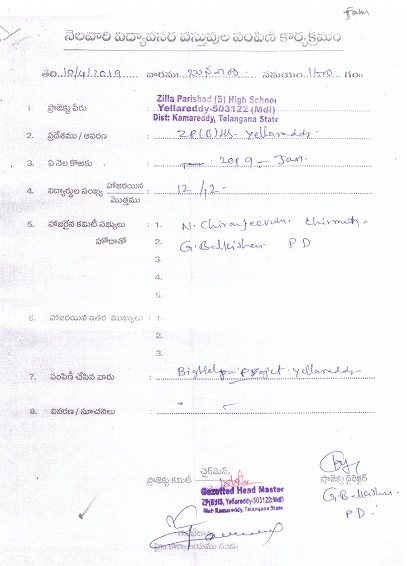 నెలవారి విద్యావసర వస్తువుల పంపిణి కార్యక్రమం
తేది 10/4/2019 వారము బుధవారం సమయం 11.00 గం.
1. ప్రాజెక్టు పేరు : Zilla Parishad (B) High School
Yellareddy-503122 (Mdl)
Dist: Kamareddy, Telangana State
2. ప్రదేశము / ఆవరణ : ZP(B)HS. Yellareddy
3. ఏ నెల కొరకు : 2019 - Jan.
4. విద్యార్థుల సంఖ్య హాజరయిన / మొత్తము : 12/42.
5. హాజరైన కమిటీ సభ్యులు : 1. N. Chiranjeevulu.
హోదాతో 2. G. Balkishan PD
3.
4.
5.
6. హాజరయిన ఇతర ముఖ్యులు : 1.
2.
3.
7. పంపిణీ చేసిన వారు : BigHelp Project Yellareddy
8. వివరణ / సూచనలు :
ప్రాజెక్టు కమిటీ ఛైర్మెన్,
ప్రాజెక్టు డైరెక్టర్
Gazetted Head Master
ZP(B)HS, Yellareddy-503122(Mdl)
Dist: Kamareddy, Telangana State
G. Balkishan
PD.